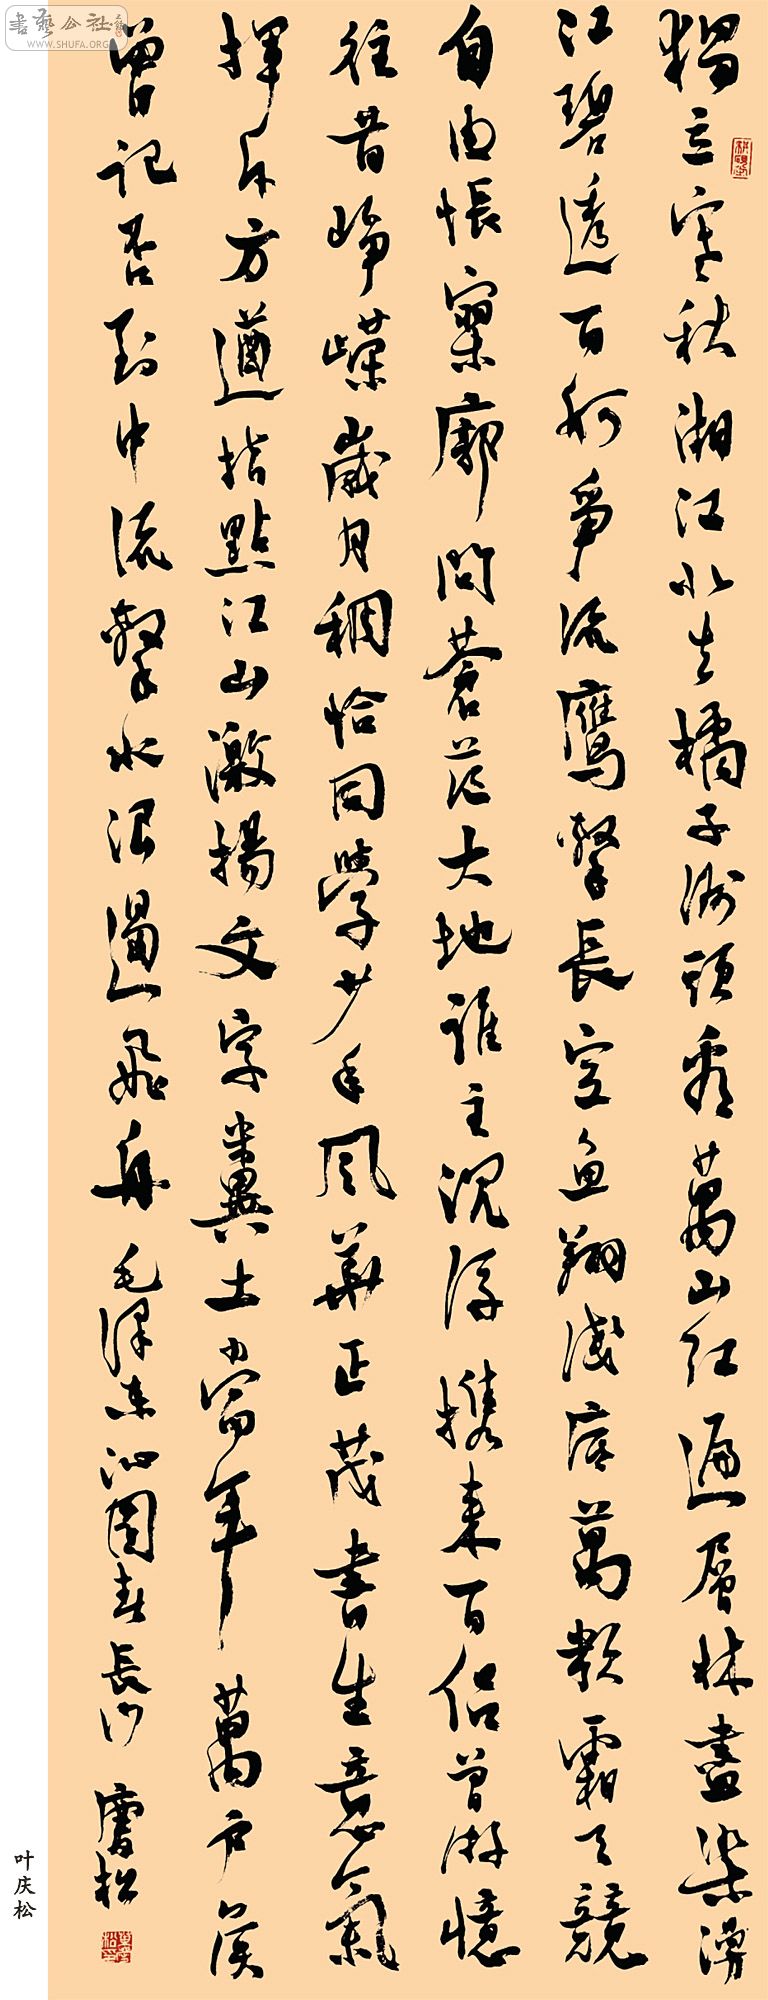 書藝公社
WWW.SHUFA.ORG
獨立寒秋湘江北去橘子洲頭看萬山紅遍層林盡染漫
江碧透百舸爭流鷹擊長空魚翔淺底萬類霜天競
自由悵寥廓問蒼茫大地誰主沉浮攜來百侶曾游憶
往昔崢嶸歲月稠恰同學少年風華正茂書生意氣
揮斥方遒指點江山激揚文字糞土當年萬戶侯
曾記否到中流擊水浪遏飛舟 毛澤東沁園春長沙 慶松
叶庆松